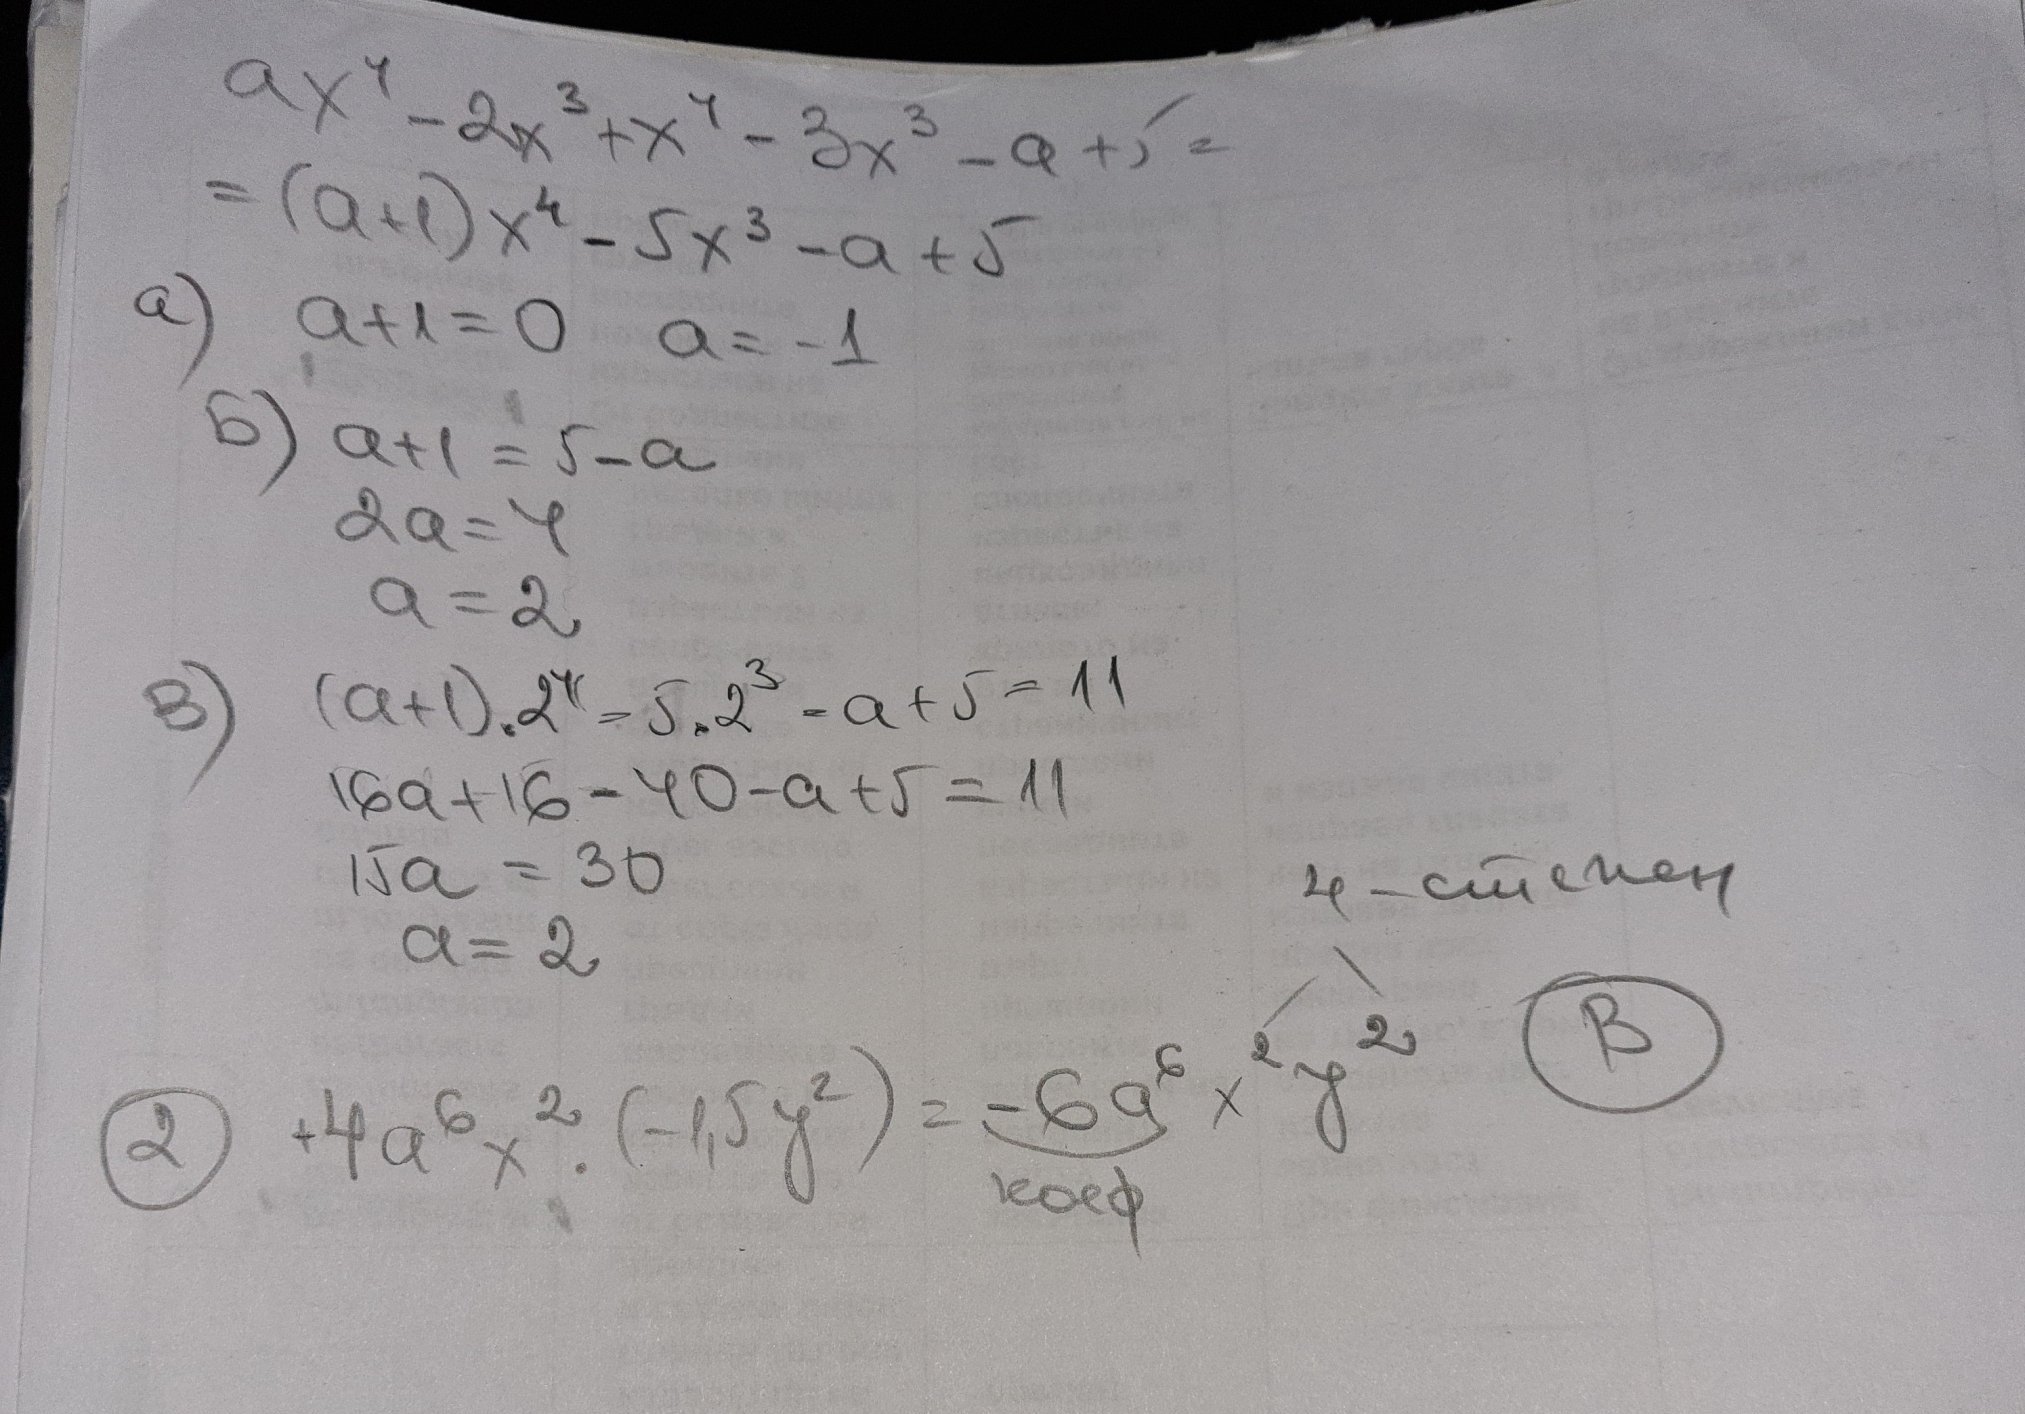 ax⁴ - 2x³ + x⁴ - 3x³ - a + 5 =
= (a+1)x⁴ - 5x³ - a + 5
а) a+1 = 0 a = -1
б) a+1 = 5-a
2a = 4
a = 2
в) (a+1).2⁴ - 5.2³ - a + 5 = 11
16a + 16 - 40 - a + 5 = 11
15a = 30
a = 2
4-степен
② +4a⁶x².(-1,5y²) = -6a⁶x²y² В
коеф